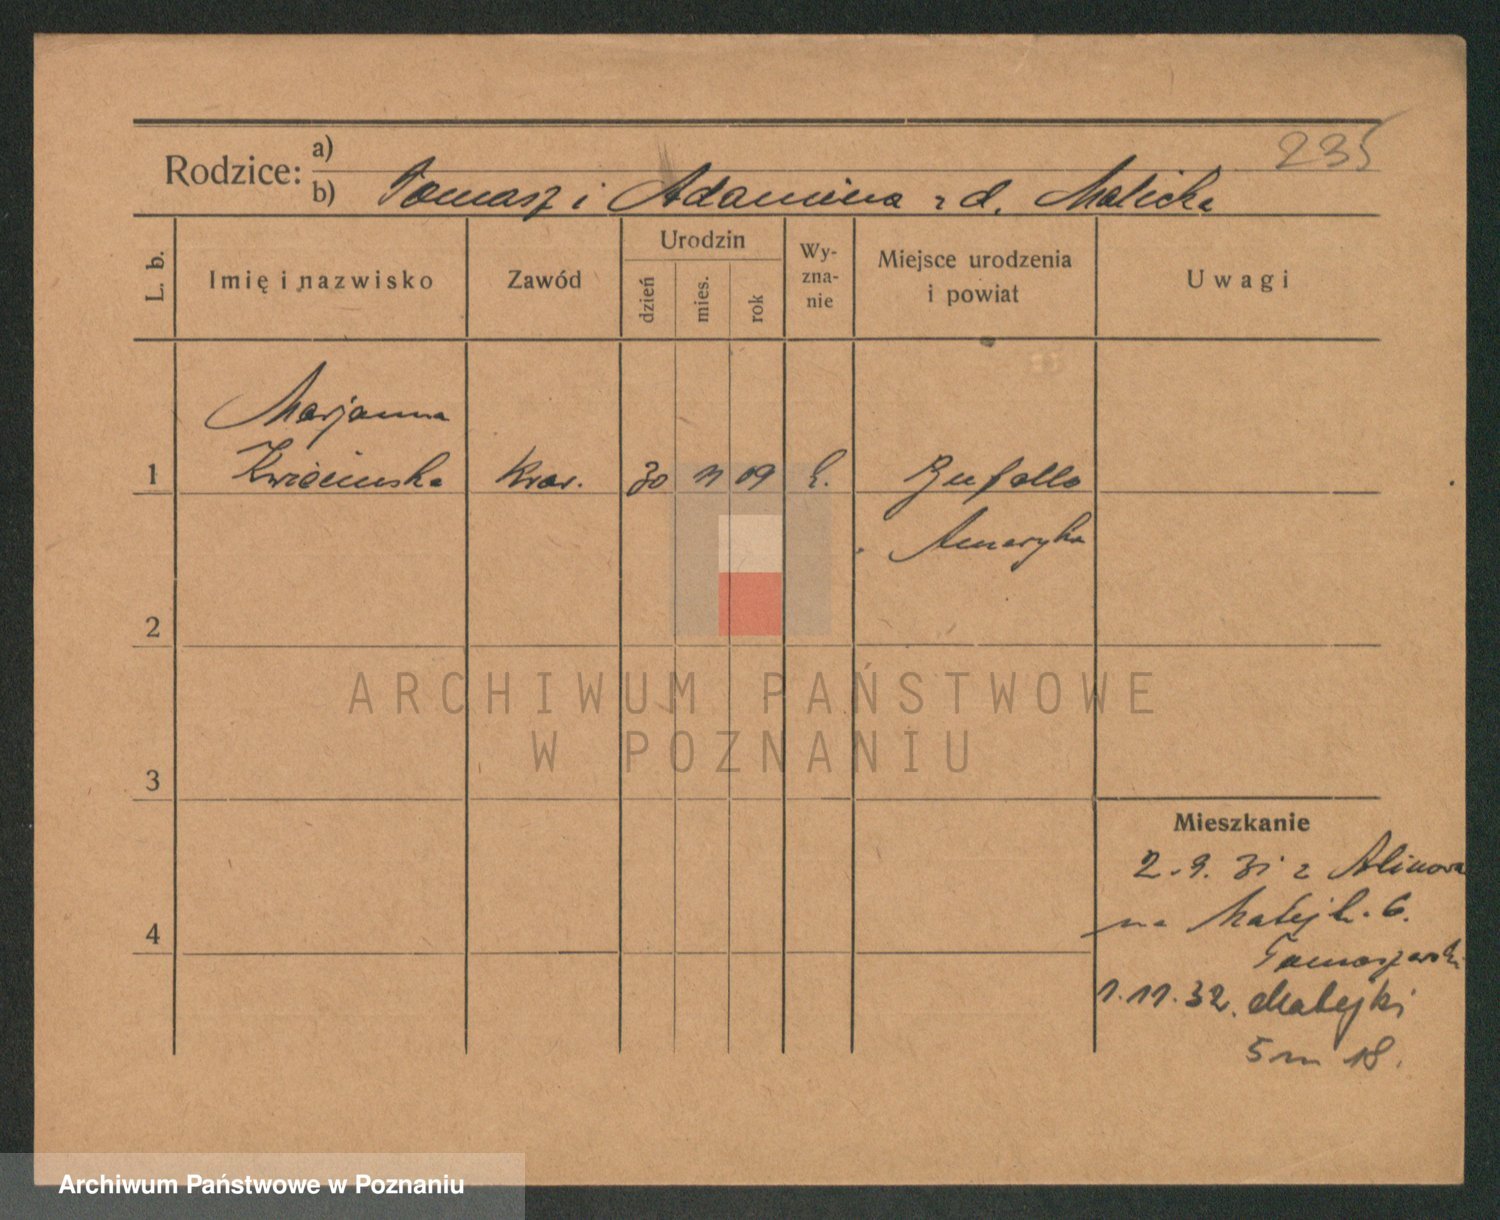 235
Rodzice: a)
b) Tomasz i Adamina z d. Malicka
L. b.
Imię i nazwisko
Zawód
Urodzin
dzień
mies.
rok
Wy-
zna-
nie
Miejsce urodzenia
i powiat
Uwagi
Marjanna
1 Kwiecińska kraw. 30 11 09 k. Bufallo
Ameryka
2
ARCHIWUM PAŃSTWOWE
W POZNANIU
3
Mieszkanie
2.9.31 z
na Matejk. 6.
4
Tomaszewski
1.11.32. Matejki
5 m 18.
Archiwum Państwowe w Poznaniu